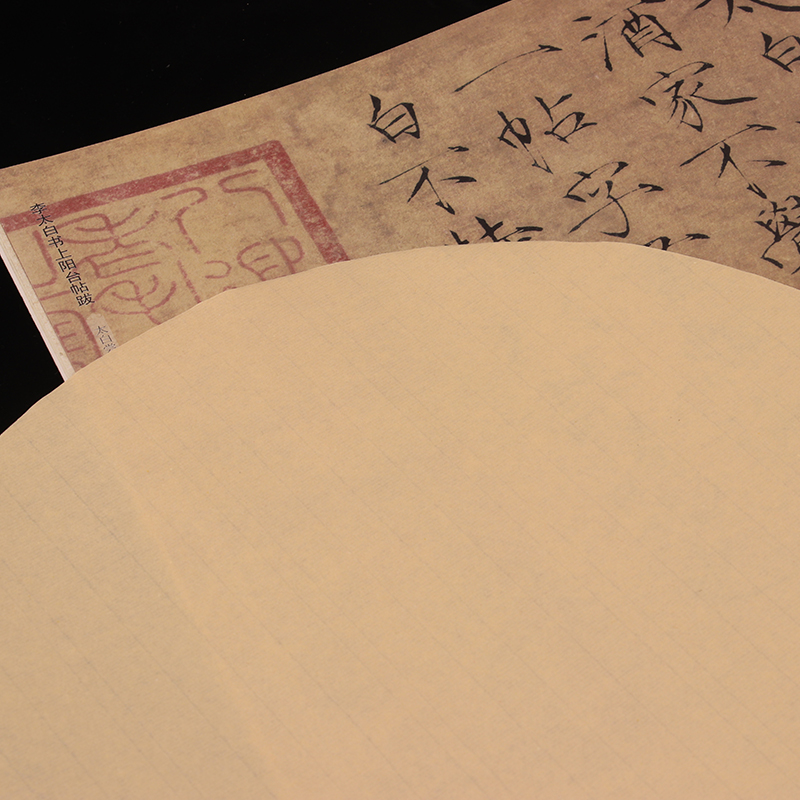 太白
酒家不覺
一帖字
白不
李太白书上阳台帖跋
太白尝